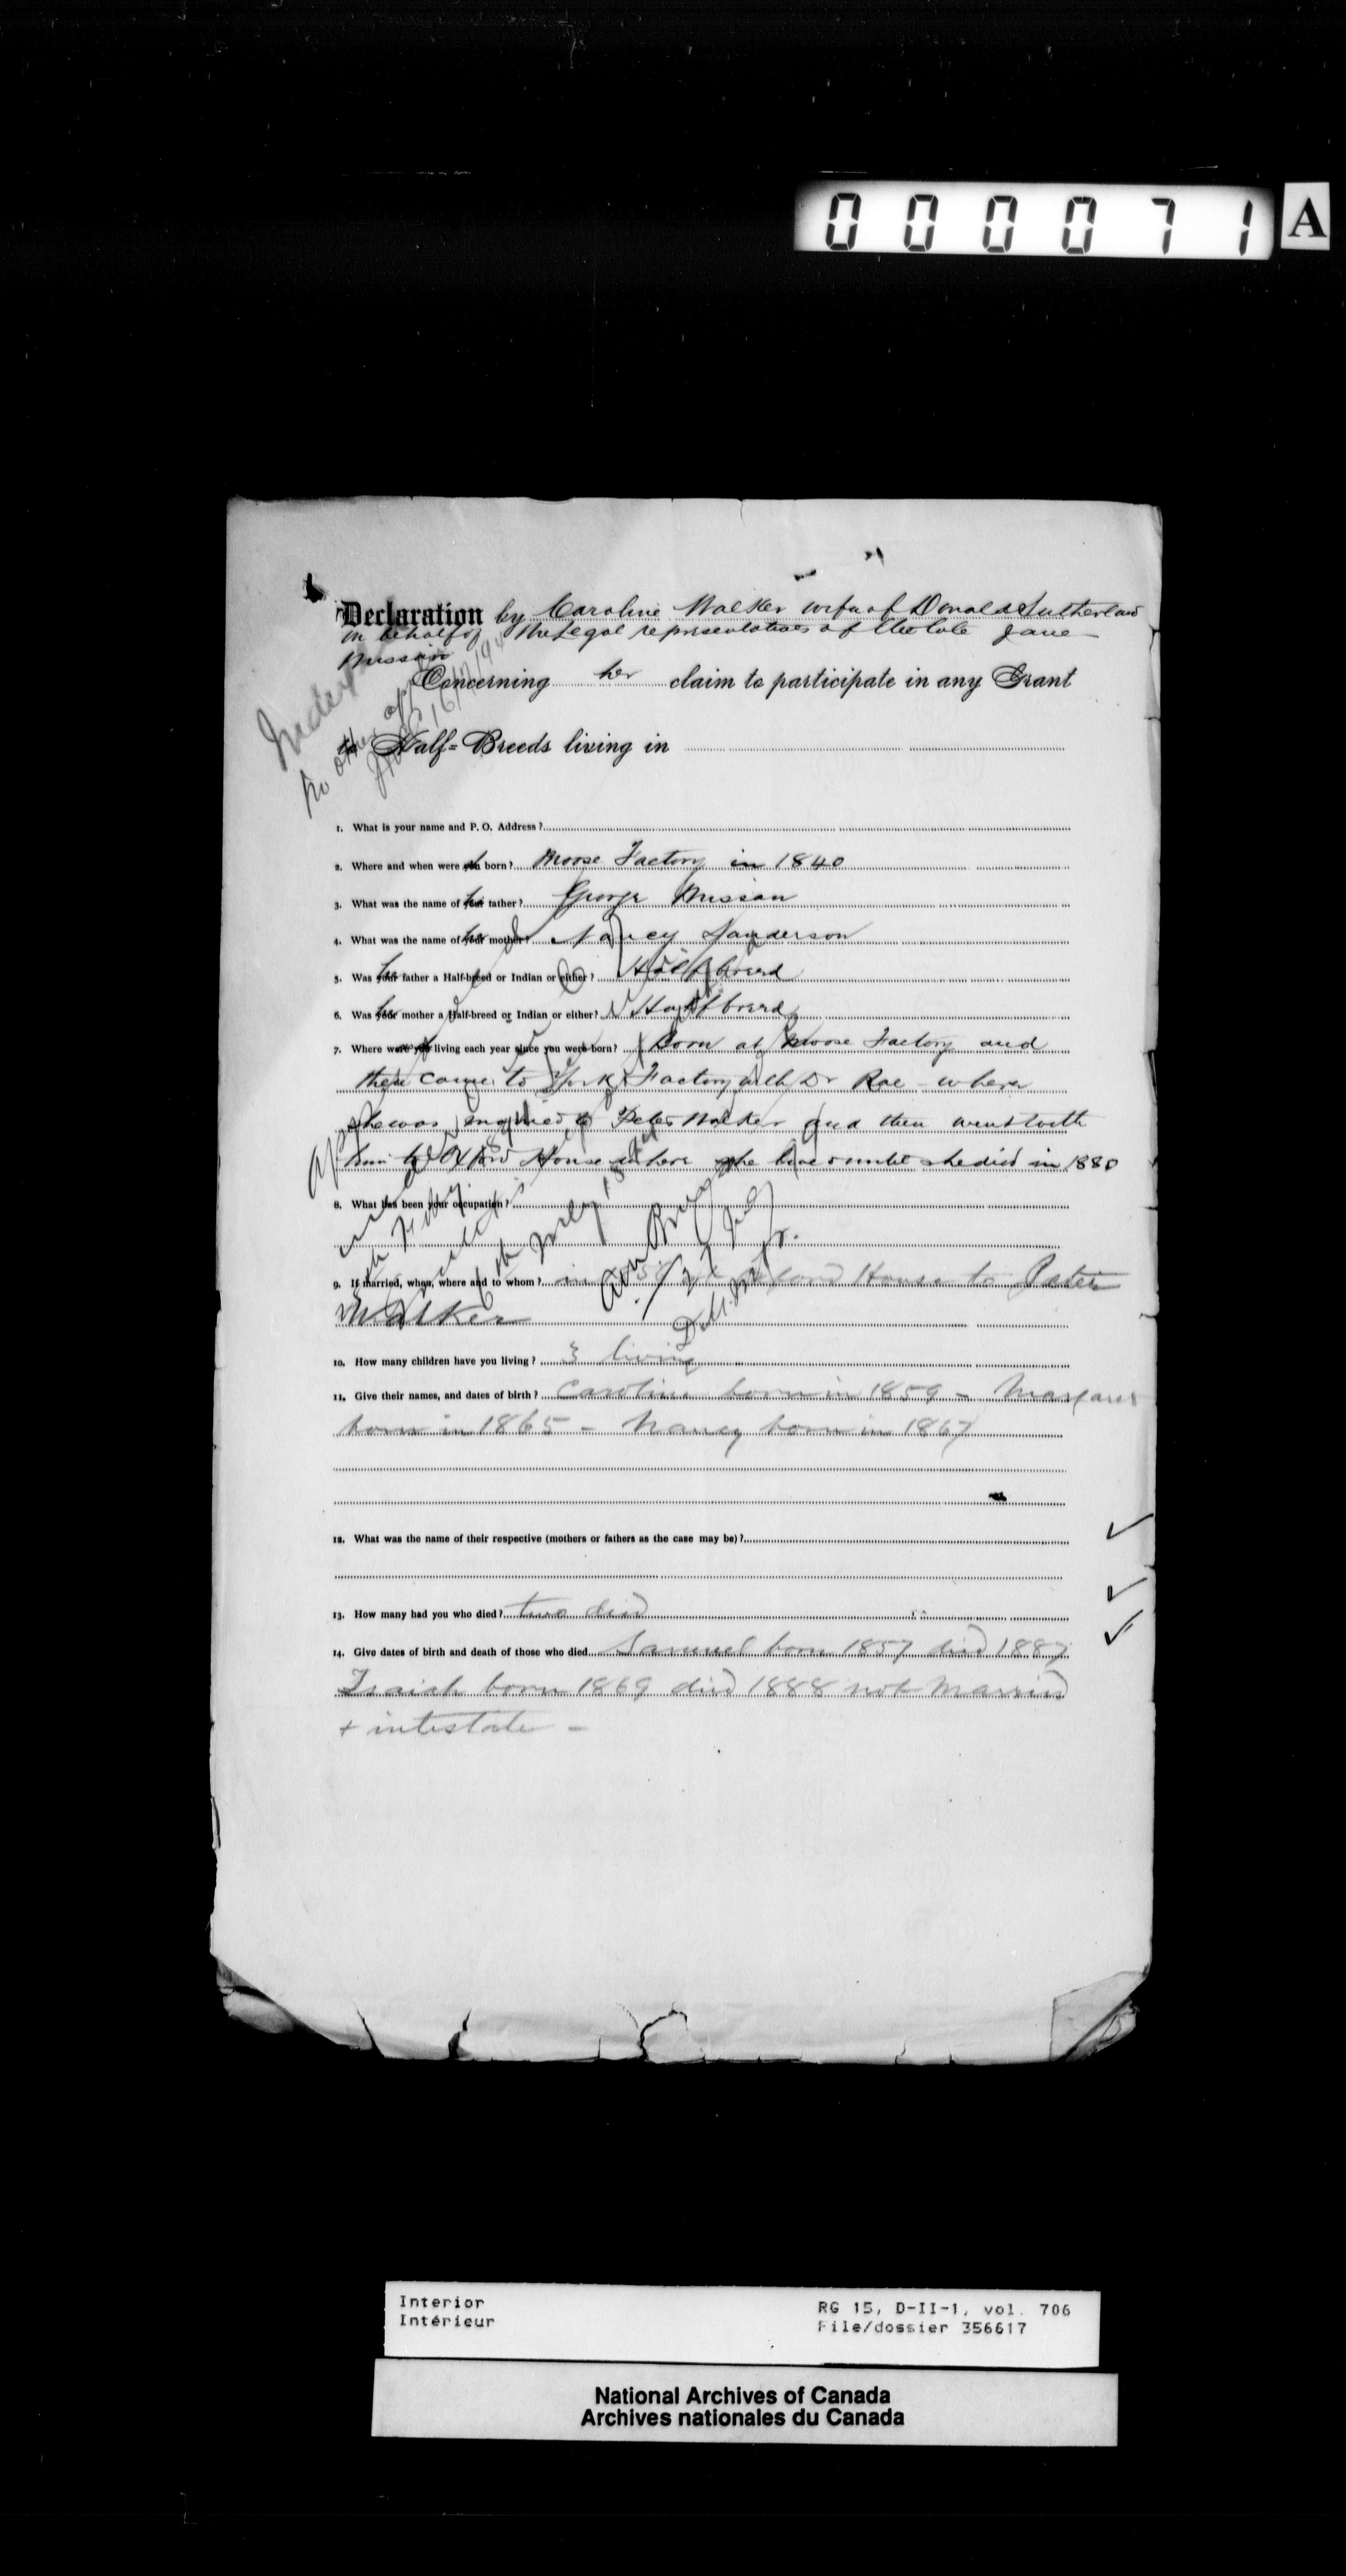 000071 A
Declaration by Caroline Walker wife of Donald Sutherland
in behalf of the Legal representatives of the late Jane
Missan
Concerning her claim to participate in any Grant
to Half-Breeds living in
no other app
1. What is your name and P. O. Address?
2. Where and when were born? Moose Factory in 1840
3. What was the name of her father? George Missan
4. What was the name of her mother? Nancy Sanderson
5. Was her father a Half-breed or Indian or either? Halfbreed
6. Was her mother a Half-breed or Indian or either? Halfbreed
7. Where were you living each year since you were born? Born at Moose Factory and
then came to York Factory with Dr Rae - where
she was married to Peter Walker and then went with
him to Oxford House where she lived until she died in 1880
8. What has been your occupation?
9. If married, when, where and to whom? in House to Peter
Walker
10. How many children have you living? 3 living
11. Give their names, and dates of birth? Caroline born in 1859 - Margaret
born in 1865 - Nancy born in 1867
12. What was the name of their respective (mothers or fathers as the case may be)?
13. How many had you who died? two died
14. Give dates of birth and death of those who died Samuel born 1857 died 1887
Isaiah born 1869 died 1888 not married
+ intestate -
Interior
Intérieur
RG 15, D-II-1, vol. 706
File/dossier 356617
National Archives of Canada
Archives nationales du Canada